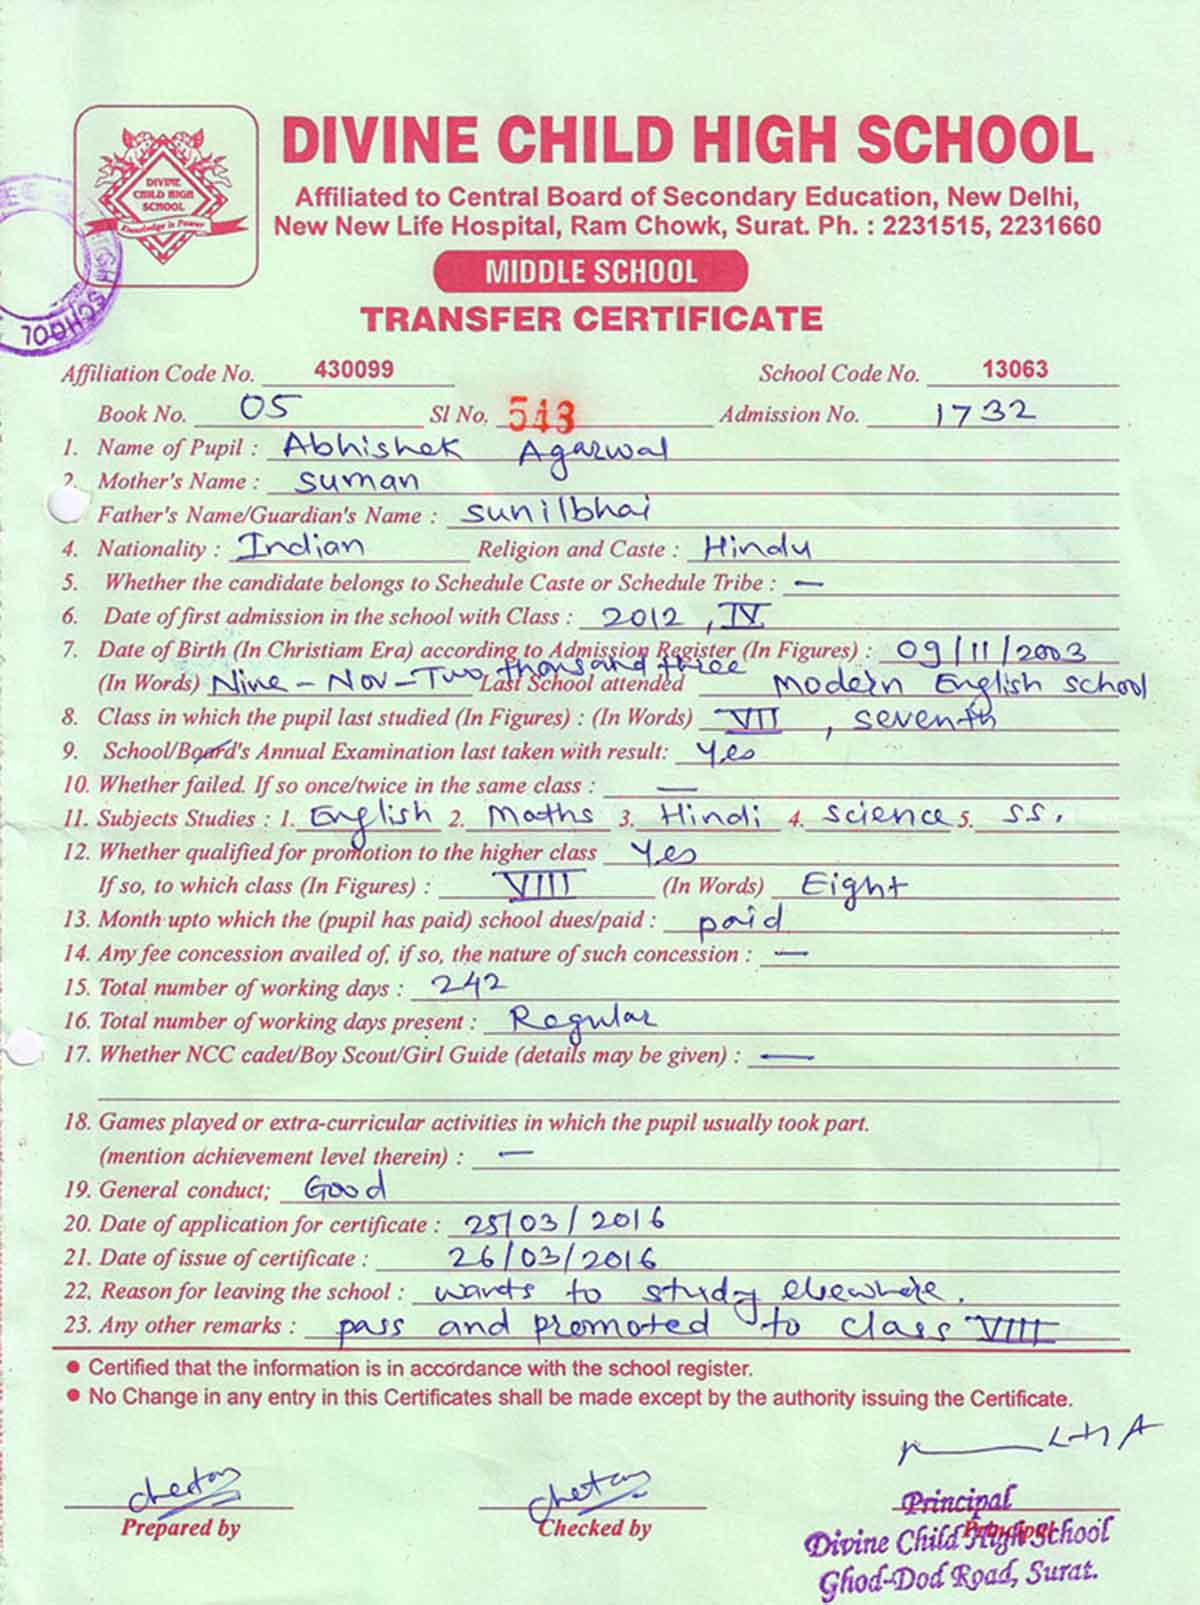 DIVINE CHILD HIGH SCHOOL
DIVINE
CHILD HIGH
SCHOOL
Knowledge is Power
Affiliated to Central Board of Secondary Education, New Delhi,
New New Life Hospital, Ram Chowk, Surat. Ph. : 2231515, 2231660
IGH SCHOOL
MIDDLE SCHOOL
TRANSFER CERTIFICATE
Affiliation Code No. 430099 School Code No. 13063
Book No. 05 Sl No. 543 Admission No. 1732
1. Name of Pupil : Abhishek Agarwal
2. Mother's Name : Suman
Father's Name/Guardian's Name : Sunilbhai
4. Nationality : Indian Religion and Caste : Hindu
5. Whether the candidate belongs to Schedule Caste or Schedule Tribe : —
6. Date of first admission in the school with Class : 2012, IV
7. Date of Birth (In Christiam Era) according to Admission Register (In Figures) : 09/11/2003
(In Words) Nine - Nov - Two thousand three Last School attended Modern English School
8. Class in which the pupil last studied (In Figures) : (In Words) VII, seventh
9. School/Board's Annual Examination last taken with result: Yes
10. Whether failed. If so once/twice in the same class : —
11. Subjects Studies : 1. English 2. Maths 3. Hindi 4. Science 5. SS.
12. Whether qualified for promotion to the higher class Yes
If so, to which class (In Figures) : VIII (In Words) Eight
13. Month upto which the (pupil has paid) school dues/paid : paid
14. Any fee concession availed of, if so, the nature of such concession : —
15. Total number of working days : 242
16. Total number of working days present : Regular
17. Whether NCC cadet/Boy Scout/Girl Guide (details may be given) : —
18. Games played or extra-curricular activities in which the pupil usually took part.
(mention achievement level therein) : —
19. General conduct; Good
20. Date of application for certificate : 25/03/2016
21. Date of issue of certificate : 26/03/2016
22. Reason for leaving the school : wants to study elsewhere.
23. Any other remarks : pass and promoted to class VIII
• Certified that the information is in accordance with the school register.
• No Change in any entry in this Certificates shall be made except by the authority issuing the Certificate.
Chetan Chetan
Prepared by Checked by Principal
Principal
Divine Child High School
Ghod-Dod Road, Surat.